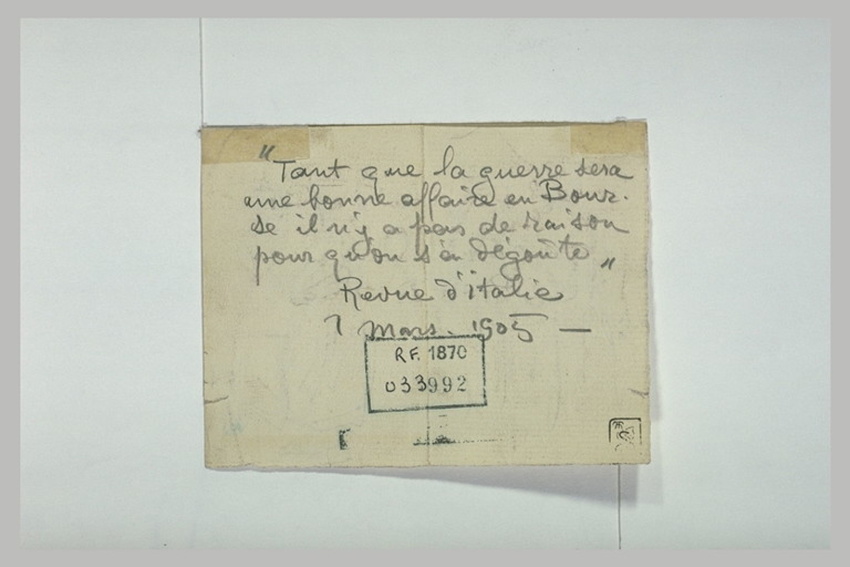 "Tant que la guerre sera
une bonne affaire en Bour.
se il n'y a pas de raison
pour qu'on s'en dégoûte "
Revue d'Italie
7 mars. 1905 —
R.F. 1870
033992